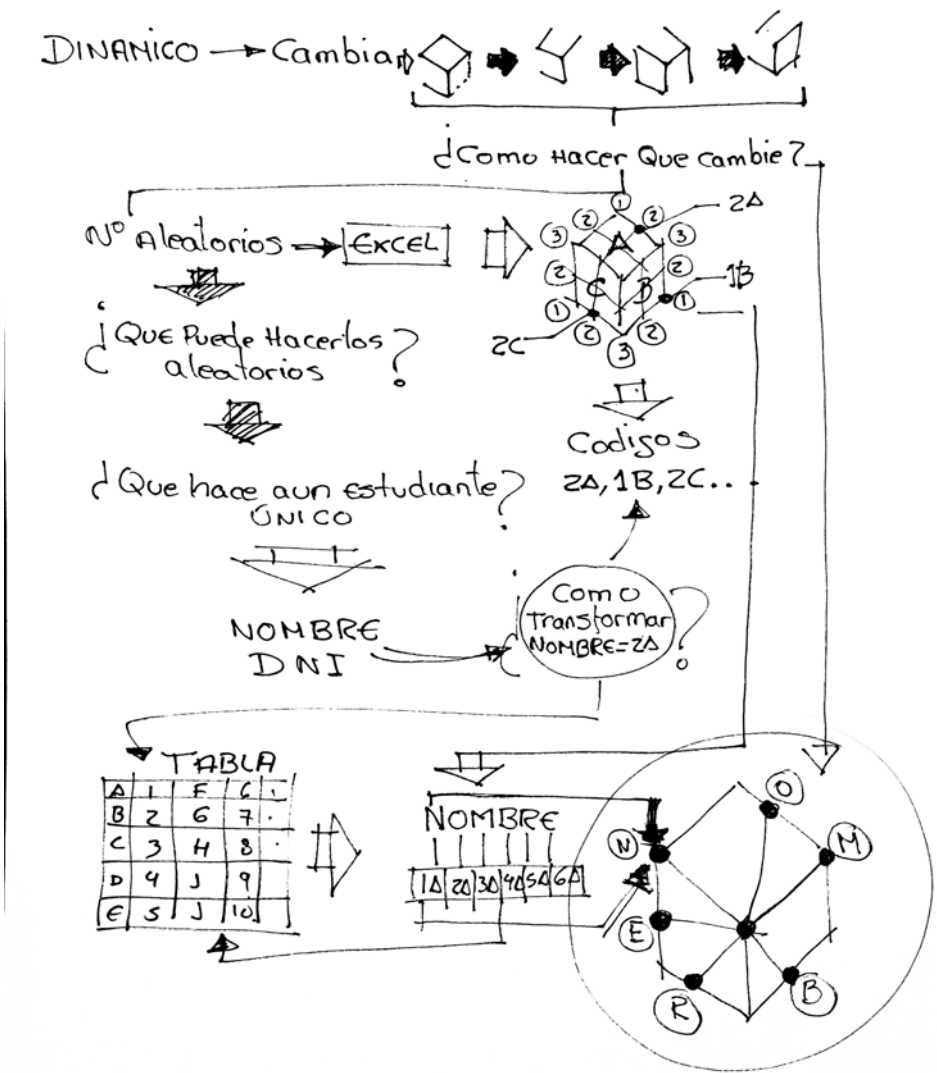 DINAMICO → Cambia
¿Como Hacer Que cambie?
Nº Aleatorios → EXCEL
1
2
2
2Δ
3
3
A
2
2
C
B
1B
1
1
2
2
2C
3
¿Que Puede Hacerlos
aleatorios?
Codigos
2Δ, 1B, 2C...
¿Que hace aun estudiante?
ÚNICO
NOMBRE
DNI
¿Como
Transformar
NOMBRE=2Δ?
TABLA
A 1 F 6 .
B 2 G 7 .
C 3 H 8 .
D 4 J 9
E 5 J 10
NOMBRE
1Δ 2Δ 3Δ 4Δ 5Δ 6Δ
O
N
M
E
R
B